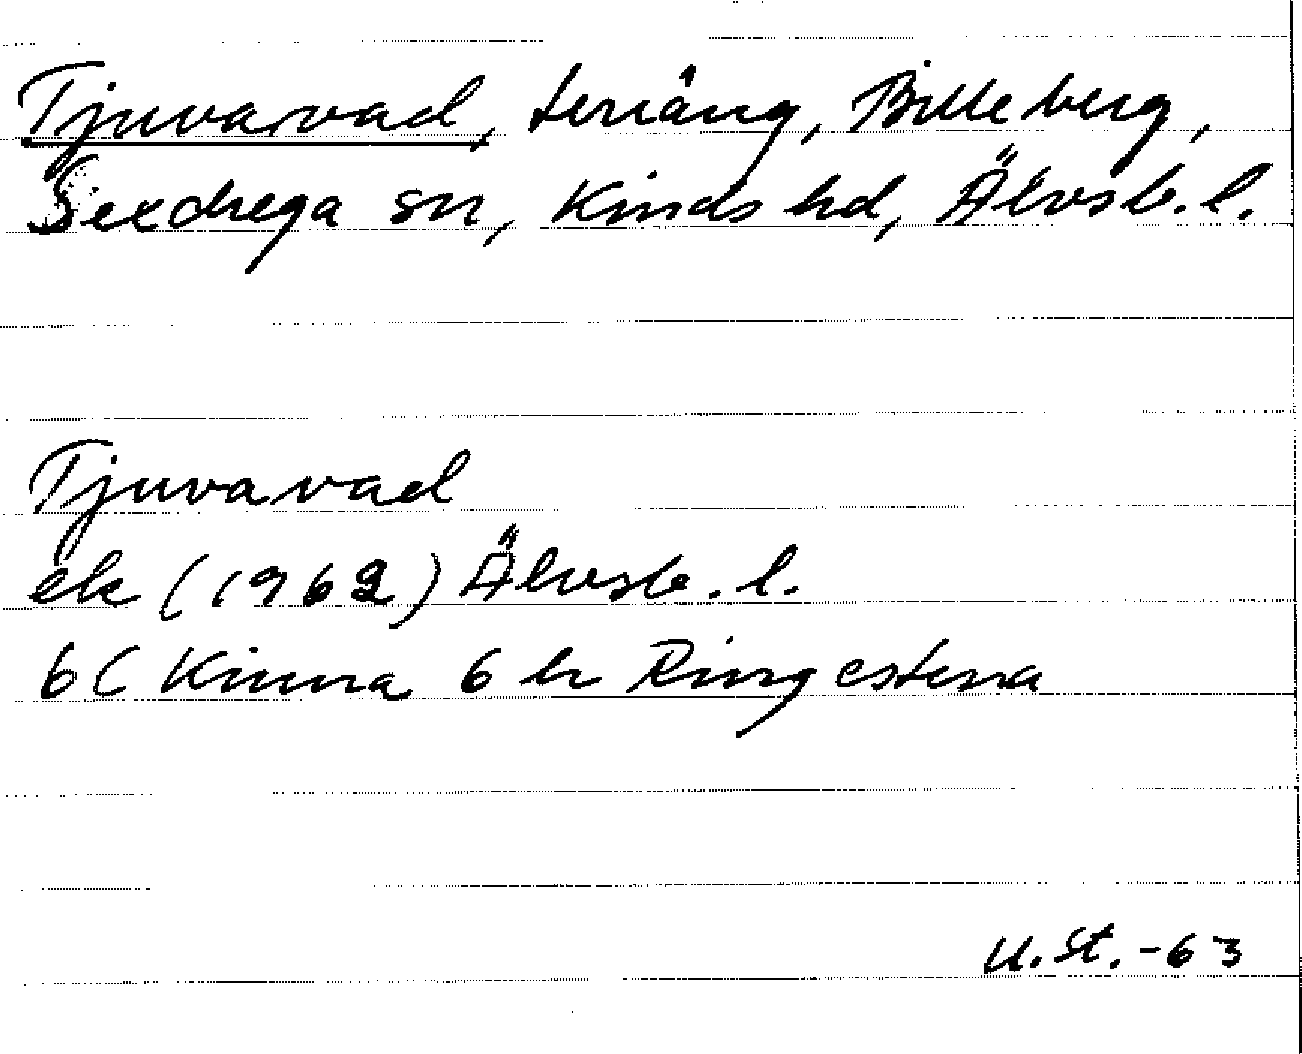 Tjuvavad, terräng, Billeberg,
Sexdrega sn, Kinds hd, Älvsb. l.
Tjuvavad
ek (1962) Älvsb. l.
6C Kinna 6 h Ringestena
U. St. -63